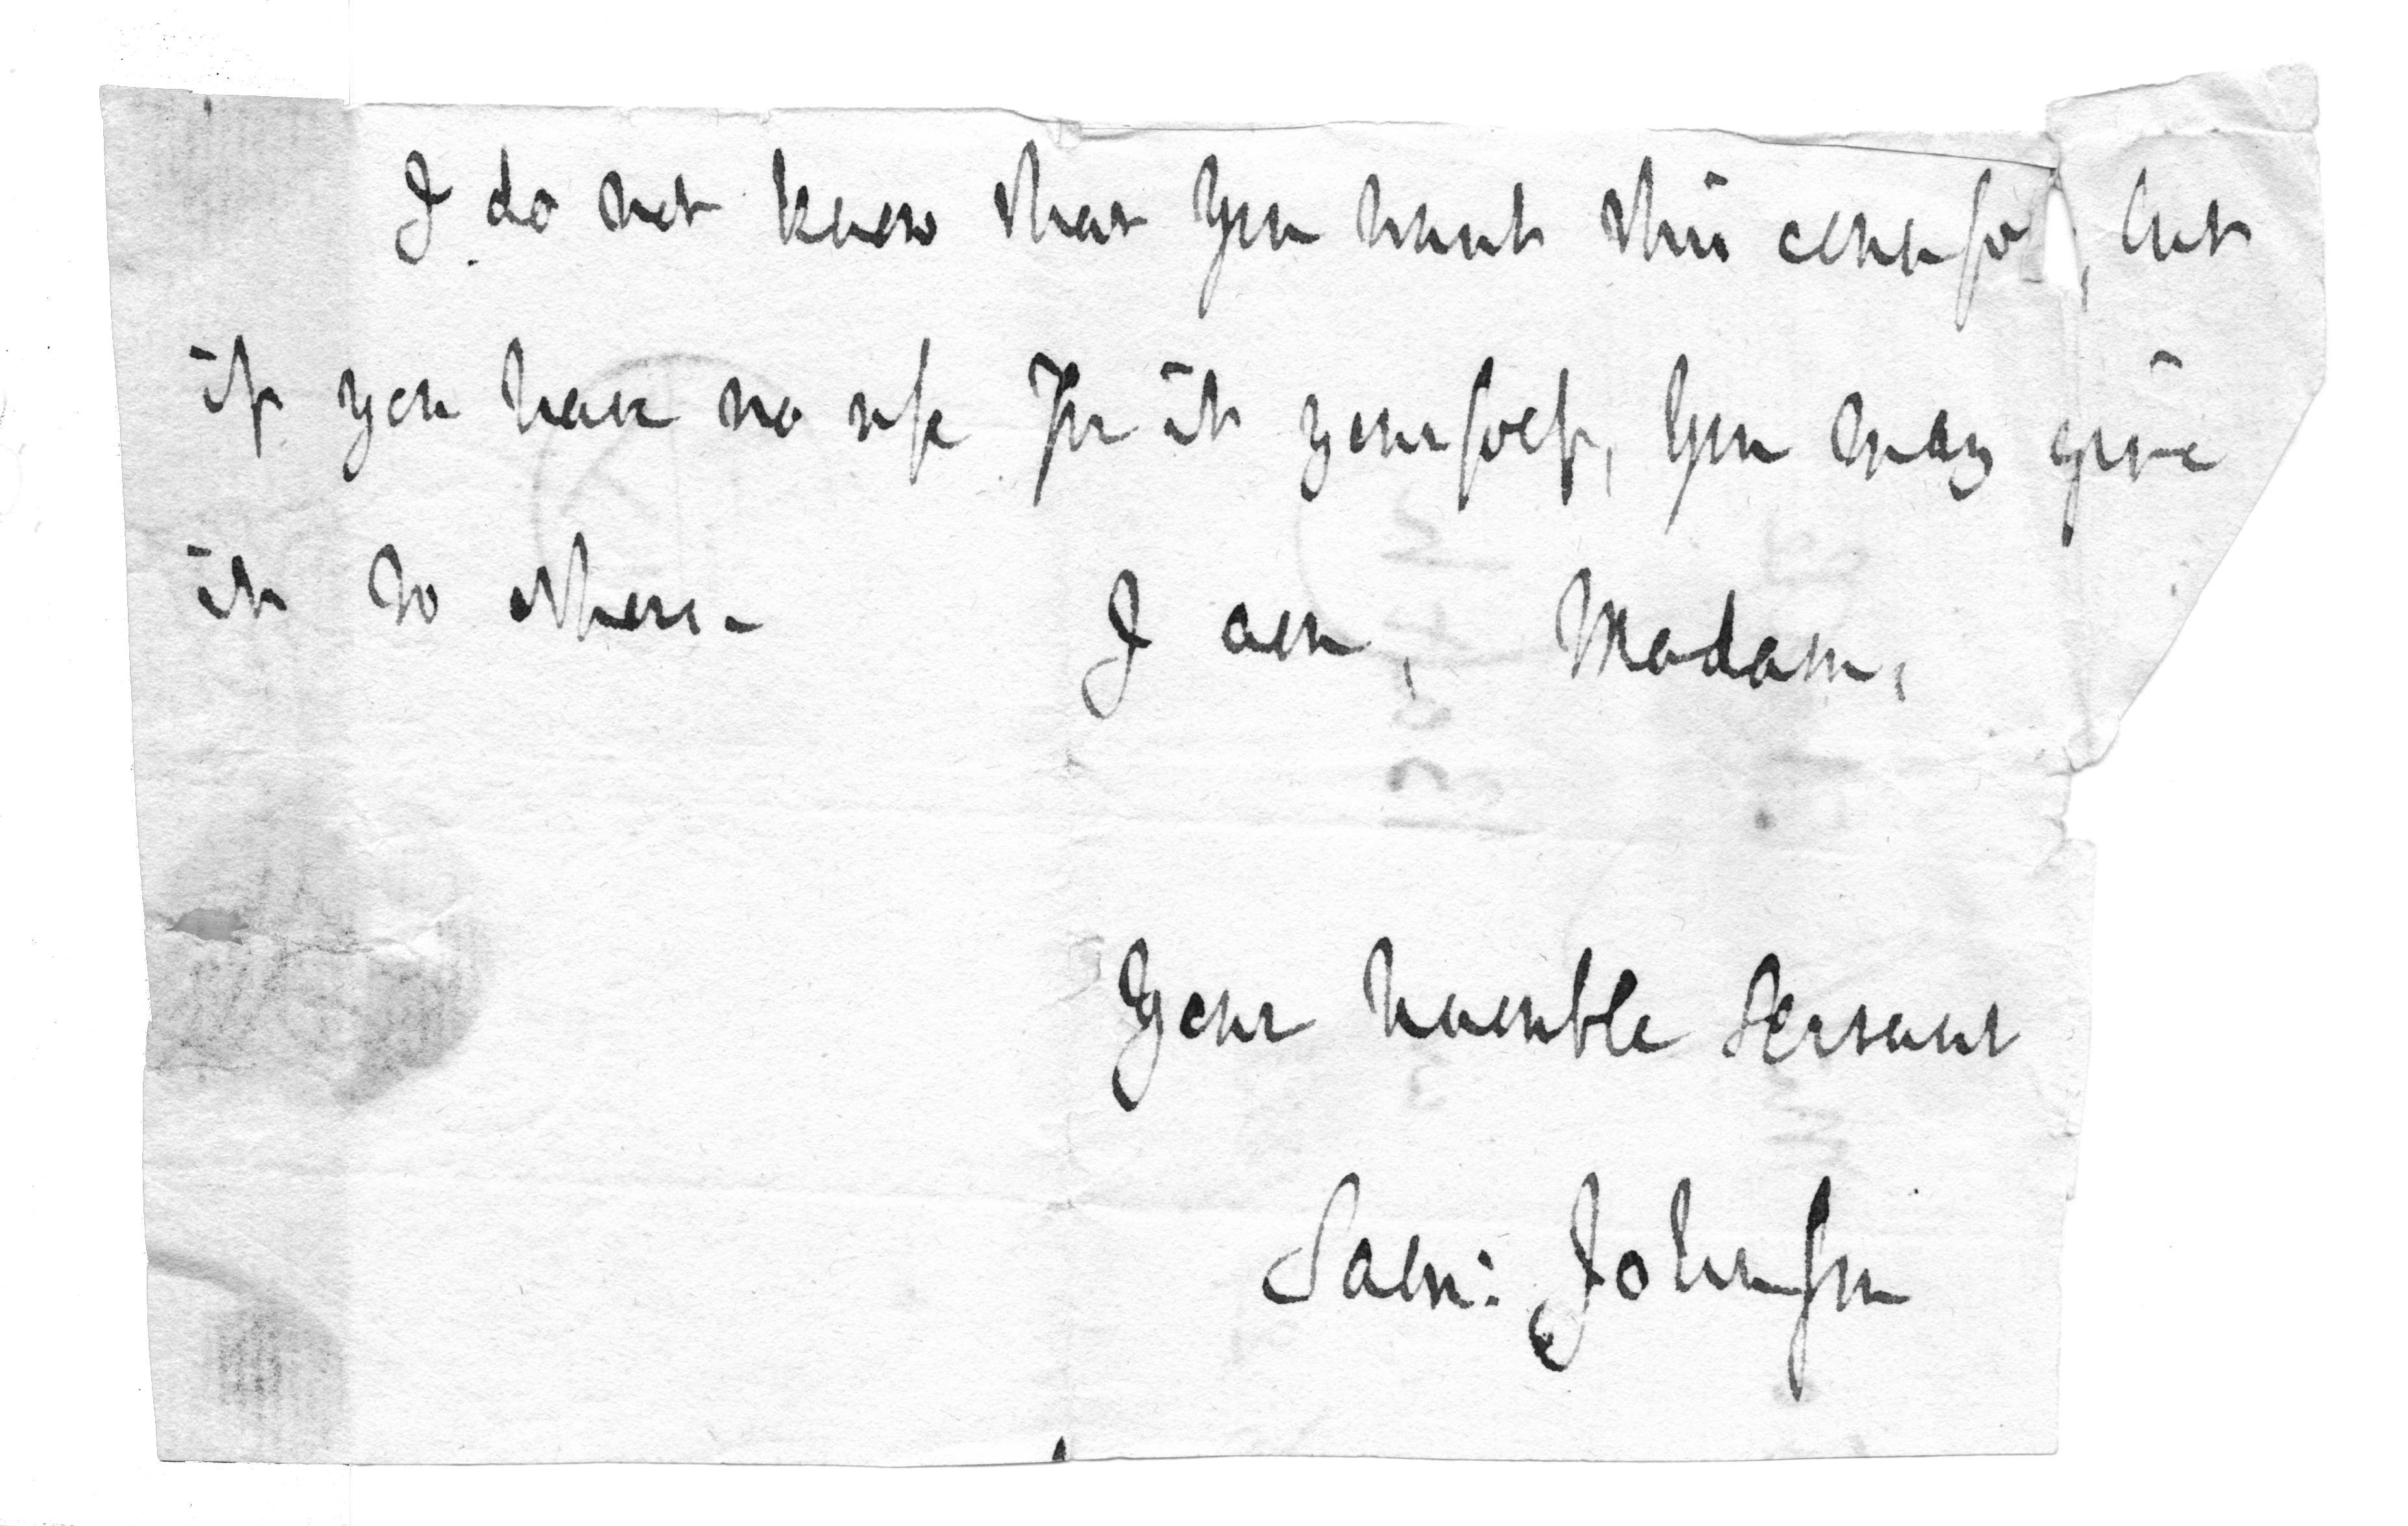 I do not know that you want this counsel, but
if you have no use for it yourself, you may give
it to others. I am, Madam,
Your humble servant
Sam: Johnson